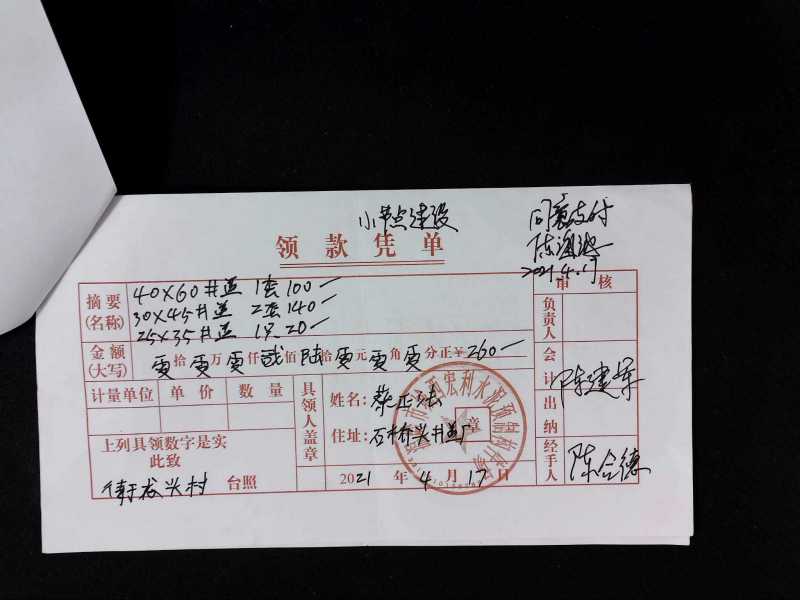 小节点建设
同意支付
2021.4.17
领款凭单
审核
摘要(名称)
40×60井盖 1套100一
30×45井盖 2套140一
25×35井盖 1只20一
负责人
金额(大写) 零拾零万零仟贰佰陆拾零元零角零分正¥260一
会计 陈建军
计量单位 单价 数量
具领人盖章
姓名:
住址: 石桥兴井盖厂
出纳
上列具领数字是实
此致
龙兴村 台照
2021年4月17日
经手人 陈合德